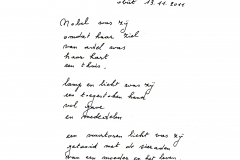 13.11.2011
Nobel was zij
omdat haar ziel
van adel was
haar hart
een thuis.
lamp en licht was zij
een toegestoken hand
vol gave
en mededelen
een vuurtoren licht was zij
getooid met de sieraden
van een moeder en het leven.